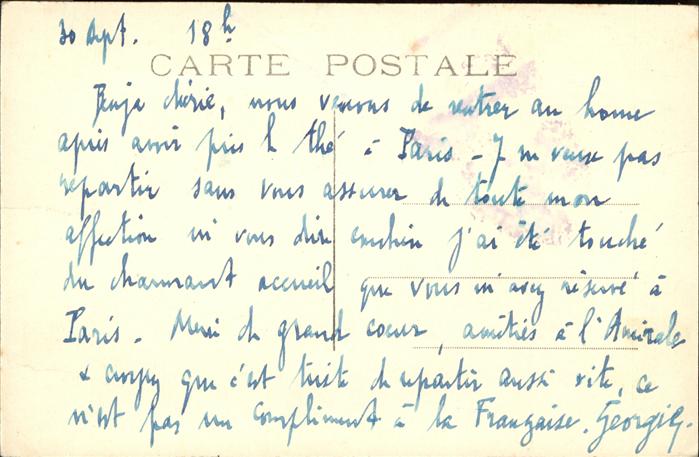 30 Sept. 18h
CARTE POSTALE
chérie, nous venons de rentrer au home
après avoir pris le thé à Paris - J ne veux pas
repartir sans vous assurer de toute mon
affection ni vous dire combien j'ai été touché
du charmant accueil que vous m'avez réservé à
Paris. Merci de grand coeur, amitiés à l'Amirale
& croyez que c'est triste de repartir aussi vite, ce
n'est pas un compliment à la Française. Georgie.